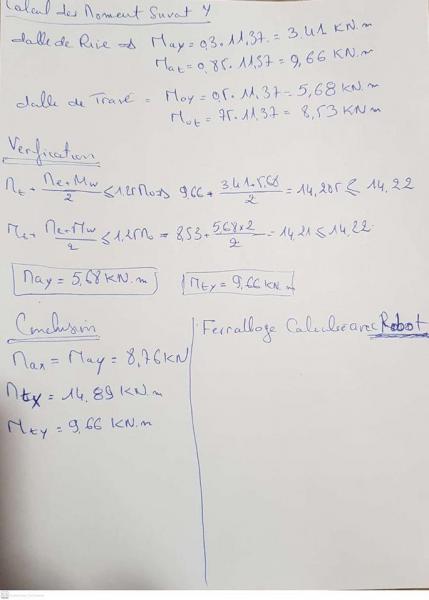 Calcul des Moment Suvat y
dalle de Rive => May = 0,3 . 11,37 = 3,41 KN.m
Mat = 0,85 . 11,37 = 9,66 KN.m
dalle de Travé = Moy = 0,5 . 11,37 = 5,68 KN.m
Mot = 75 . 11,37 = 8,53 KN.m
Verfication
Mt + Me+Mw/2 ≤ 1.25M0 => 9,66 + 3.41+5.68/2 = 14,205 ≤ 14,22
Mt + Me+Mw/2 ≤ 1.25M0 = 8,53 + 5,68x2/2 = 14,21 ≤ 14,22
May = 5,68 KN.m Mty = 9,66 KN.m
Conclusion
Max = May = 8,76 KN
Mtx = 14,89 KN.m
Mty = 9,66 KN.m
Ferrallage Calculse avec Robot